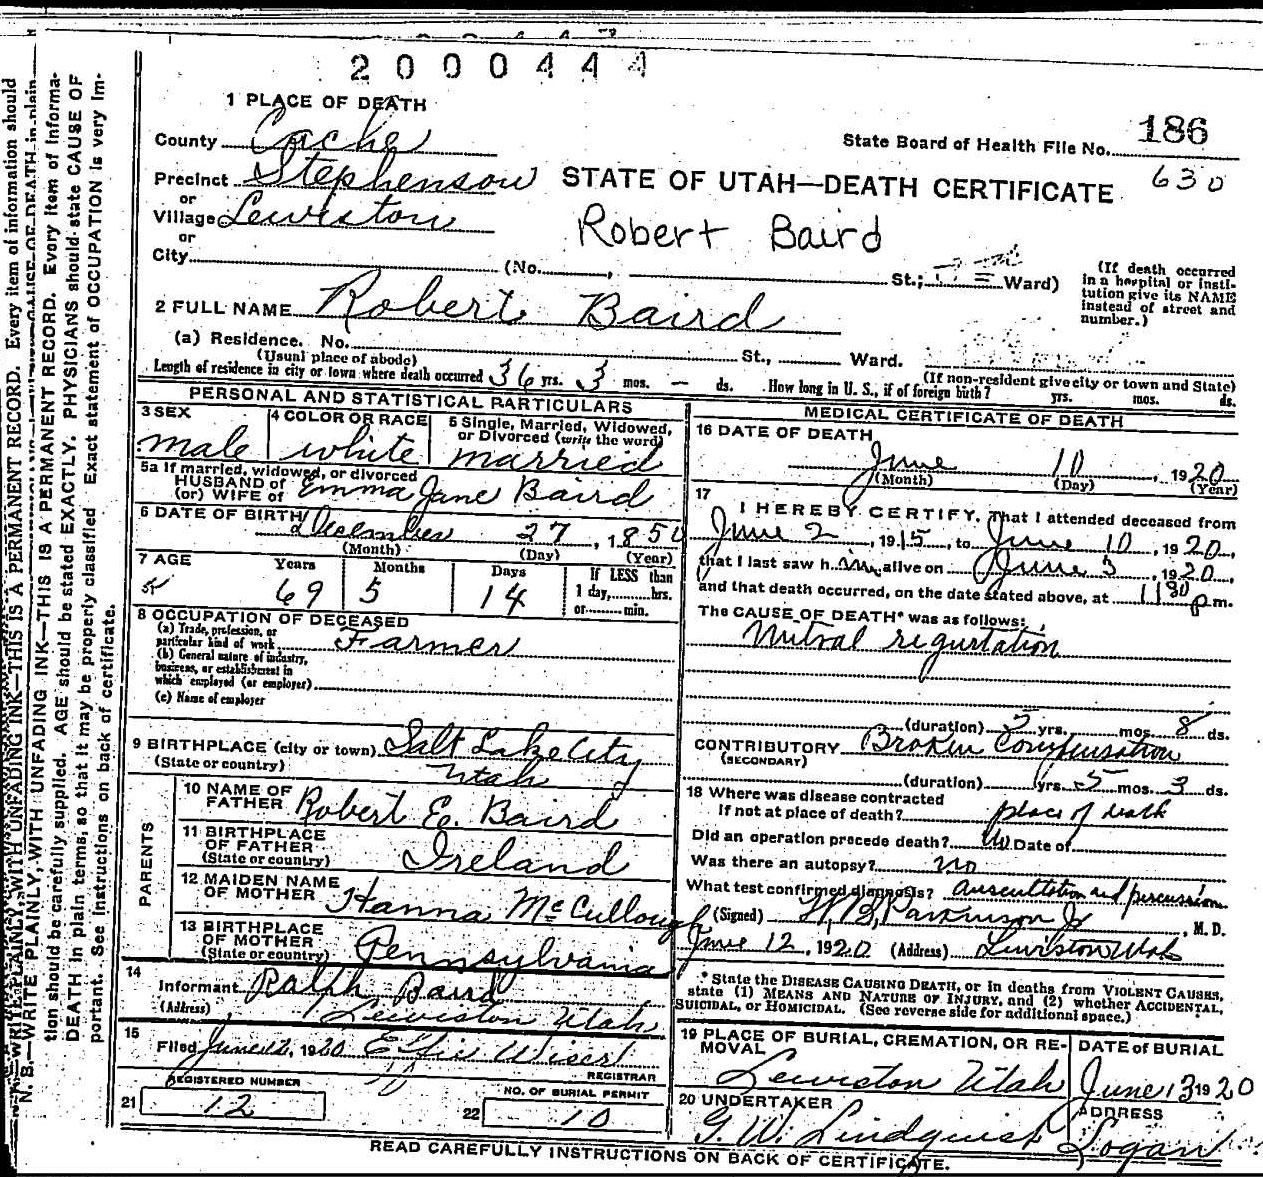 2000444
1 PLACE OF DEATH
County Cache
State Board of Health File No. 186
630
Precinct Stephenson
STATE OF UTAH—DEATH CERTIFICATE
or
Village Lewiston
Robert Baird
or
City (No. , St.; Ward)
(If death occurred in a hospital or institution give its NAME instead of street and number.)
2 FULL NAME Robert Baird
(a) Residence. No. St., Ward.
(Usual place of abode)
(If non-resident give city or town and State)
Length of residence in city or town where death occurred 36 yrs. 3 mos. — ds. How long in U. S., if of foreign birth? yrs. mos. ds.
PERSONAL AND STATISTICAL PARTICULARS
3 SEX
male
4 COLOR OR RACE
white
5 Single, Married, Widowed, or Divorced (write the word)
married
5a If married, widowed, or divorced
HUSBAND of
(or) WIFE of Emma Jane Baird
6 DATE OF BIRTH December 27, 1850
(Month) (Day) (Year)
7 AGE Years Months Days If LESS than
69 5 14 1 day, hrs.
or min.
8 OCCUPATION OF DECEASED
(a) Trade, profession, or
particular kind of work Farmer
(b) General nature of industry,
business, or establishment in
which employed (or employer)
(c) Name of employer
9 BIRTHPLACE (city or town) Salt Lake City
(State or country) Utah
PARENTS
10 NAME OF
FATHER Robert E. Baird
11 BIRTHPLACE
OF FATHER
(State or country) Ireland
12 MAIDEN NAME
OF MOTHER Hanna McCullough
13 BIRTHPLACE
OF MOTHER
(State or country) Pennsylvania
14
Informant Ralph Baird
(Address) Lewiston Utah
15
Filed June 12, 1920 Effie Wiser
REGISTRAR
REGISTERED NUMBER
21 12
NO. OF BURIAL PERMIT
22 10
MEDICAL CERTIFICATE OF DEATH
16 DATE OF DEATH
June 10, 1920
(Month) (Day) (Year)
17
I HEREBY CERTIFY, That I attended deceased from
June 2, 1915, to June 10, 1920,
that I last saw him alive on June 3, 1920,
and that death occurred, on the date stated above, at 1130 p m.
The CAUSE OF DEATH* was as follows:
Mitral regurtation
(duration) 5 yrs. mos. 8 ds.
CONTRIBUTORY Broken Compensation
(SECONDARY)
(duration) yrs. 5 mos. 3 ds.
18 Where was disease contracted
if not at place of death? place of death
Did an operation precede death? No Date of
Was there an autopsy? no
What test confirmed diagnosis? auscultation and percussion
(Signed) W. B. Parkinson Jr, M. D.
June 12, 1920 (Address) Lewiston Utah
* State the DISEASE CAUSING DEATH, or in deaths from VIOLENT CAUSES,
state (1) MEANS AND NATURE OF INJURY, and (2) whether ACCIDENTAL,
SUICIDAL, or HOMICIDAL. (See reverse side for additional space.)
19 PLACE OF BURIAL, CREMATION, OR REMOVAL
Lewiston Utah
DATE of BURIAL
June 13 1920
20 UNDERTAKER
G. W. Lindquist
ADDRESS
Logan
READ CAREFULLY INSTRUCTIONS ON BACK OF CERTIFICATE.
N. B.—WRITE PLAINLY, WITH UNFADING INK—THIS IS A PERMANENT RECORD. Every item of information should be carefully supplied. AGE should be stated EXACTLY. PHYSICIANS should state CAUSE OF DEATH in plain terms, so that it may be properly classified. Exact statement of OCCUPATION is very important. See instructions on back of certificate.